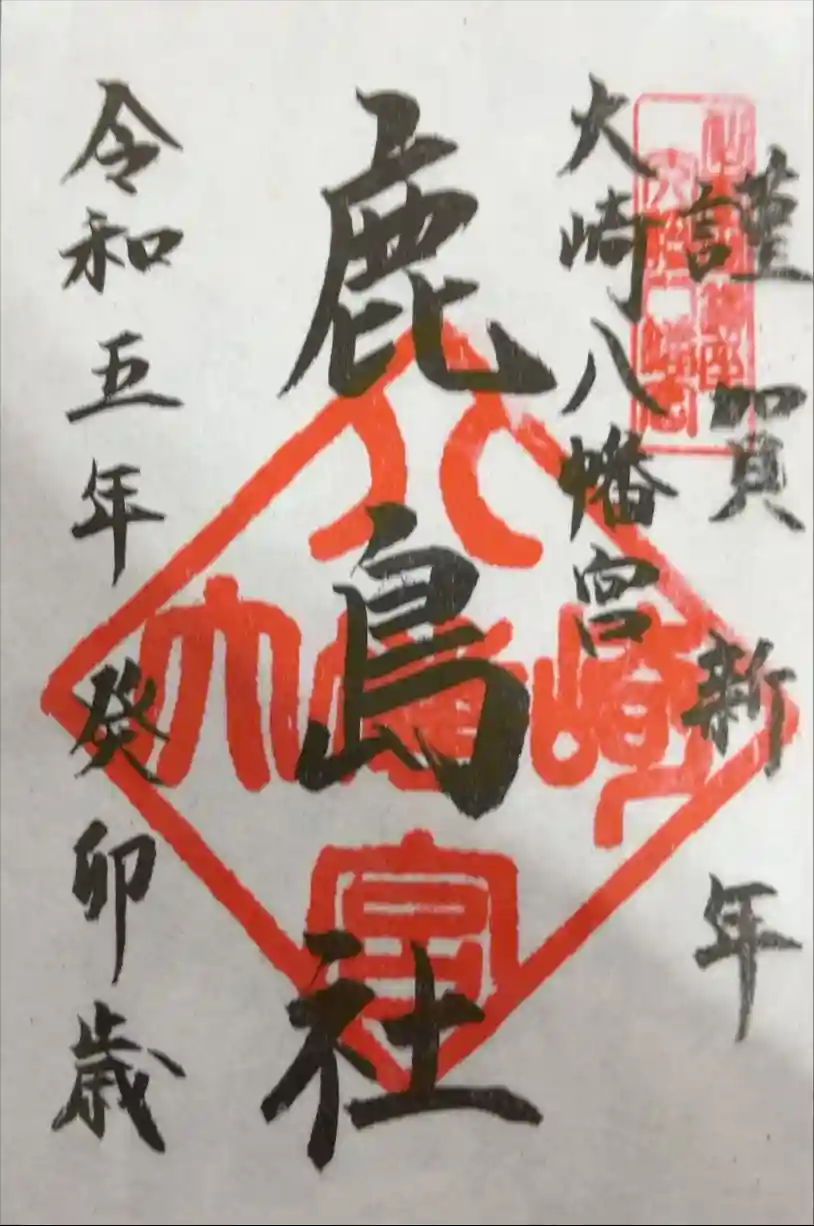 謹賀新年
大崎八幡宮
鹿島社
令和五年 癸卯歳